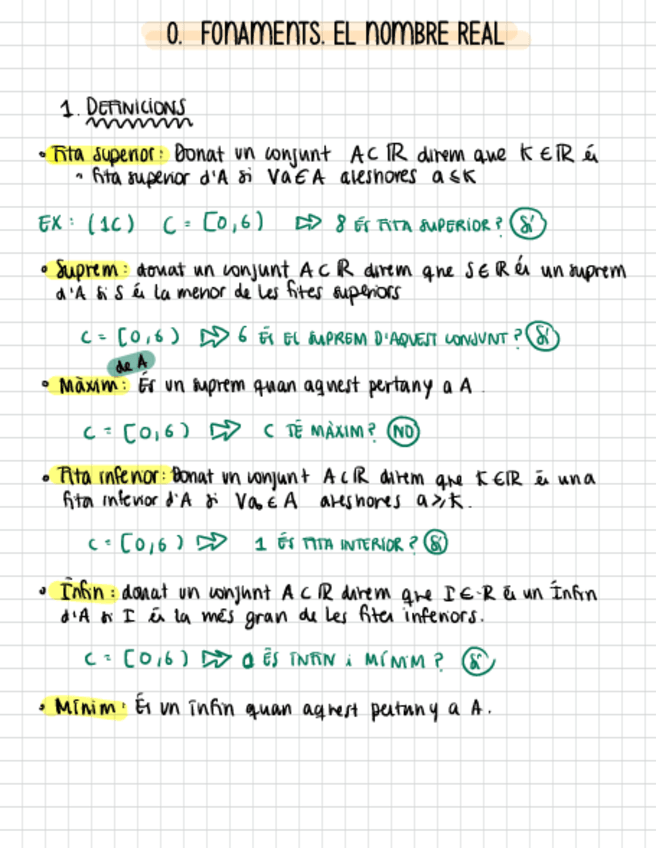 0. FONAMENTS. EL NOMBRE REAL
1. DEFINICIONS
• Fita superior: Donat un conjunt A⊂ℝ direm que K∈ℝ és
fita superior d'A si ∀a∈A aleshores a≤K
EX: (1C) C = [0,6) ⇨ 8 ÉS FITA SUPERIOR? SÍ
• Suprem: donat un conjunt A⊂ℝ direm que S∈ℝ és un suprem
d'A si S és la menor de les fites superiors
C = [0,6) ⇨ 6 ÉS EL SUPREM D'AQUEST CONJUNT? SÍ
de A
• Màxim: És un suprem quan aquest pertany a A.
C = [0,6) ⇨ C TÉ MÀXIM? NO
• Fita inferior: Donat un conjunt A⊂ℝ direm que K∈ℝ és una
fita inferior d'A si ∀a∈A aleshores a≥K.
C = [0,6) ⇨ 1 ÉS FITA INTERIOR? SÍ
• Ínfin: donat un conjunt A⊂ℝ direm que I∈ℝ és un Ínfin
d'A si I és la més gran de les fites inferiors.
C = [0,6) ⇨ 0 ÉS ÍNFIN i MÍNIM? SÍ
• Mínim: És un ínfin quan aquest pertany a A.